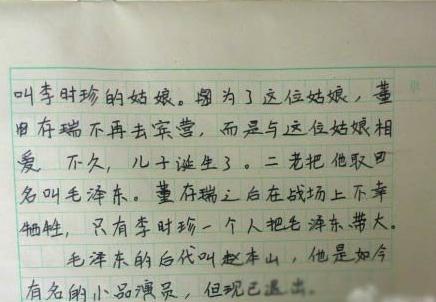 叫李时珍的姑娘。因为了这位姑娘，董
存瑞不再去宾营，而是与这位姑娘相
爱 不久，儿子诞生了。二老把他取
名叫毛泽东。董存瑞之后在战场上不幸
牺牲，只有李时珍一个人把毛泽东带大。
毛泽东的后代叫赵本山，他是如今
有名的小品演员，但现已退出。